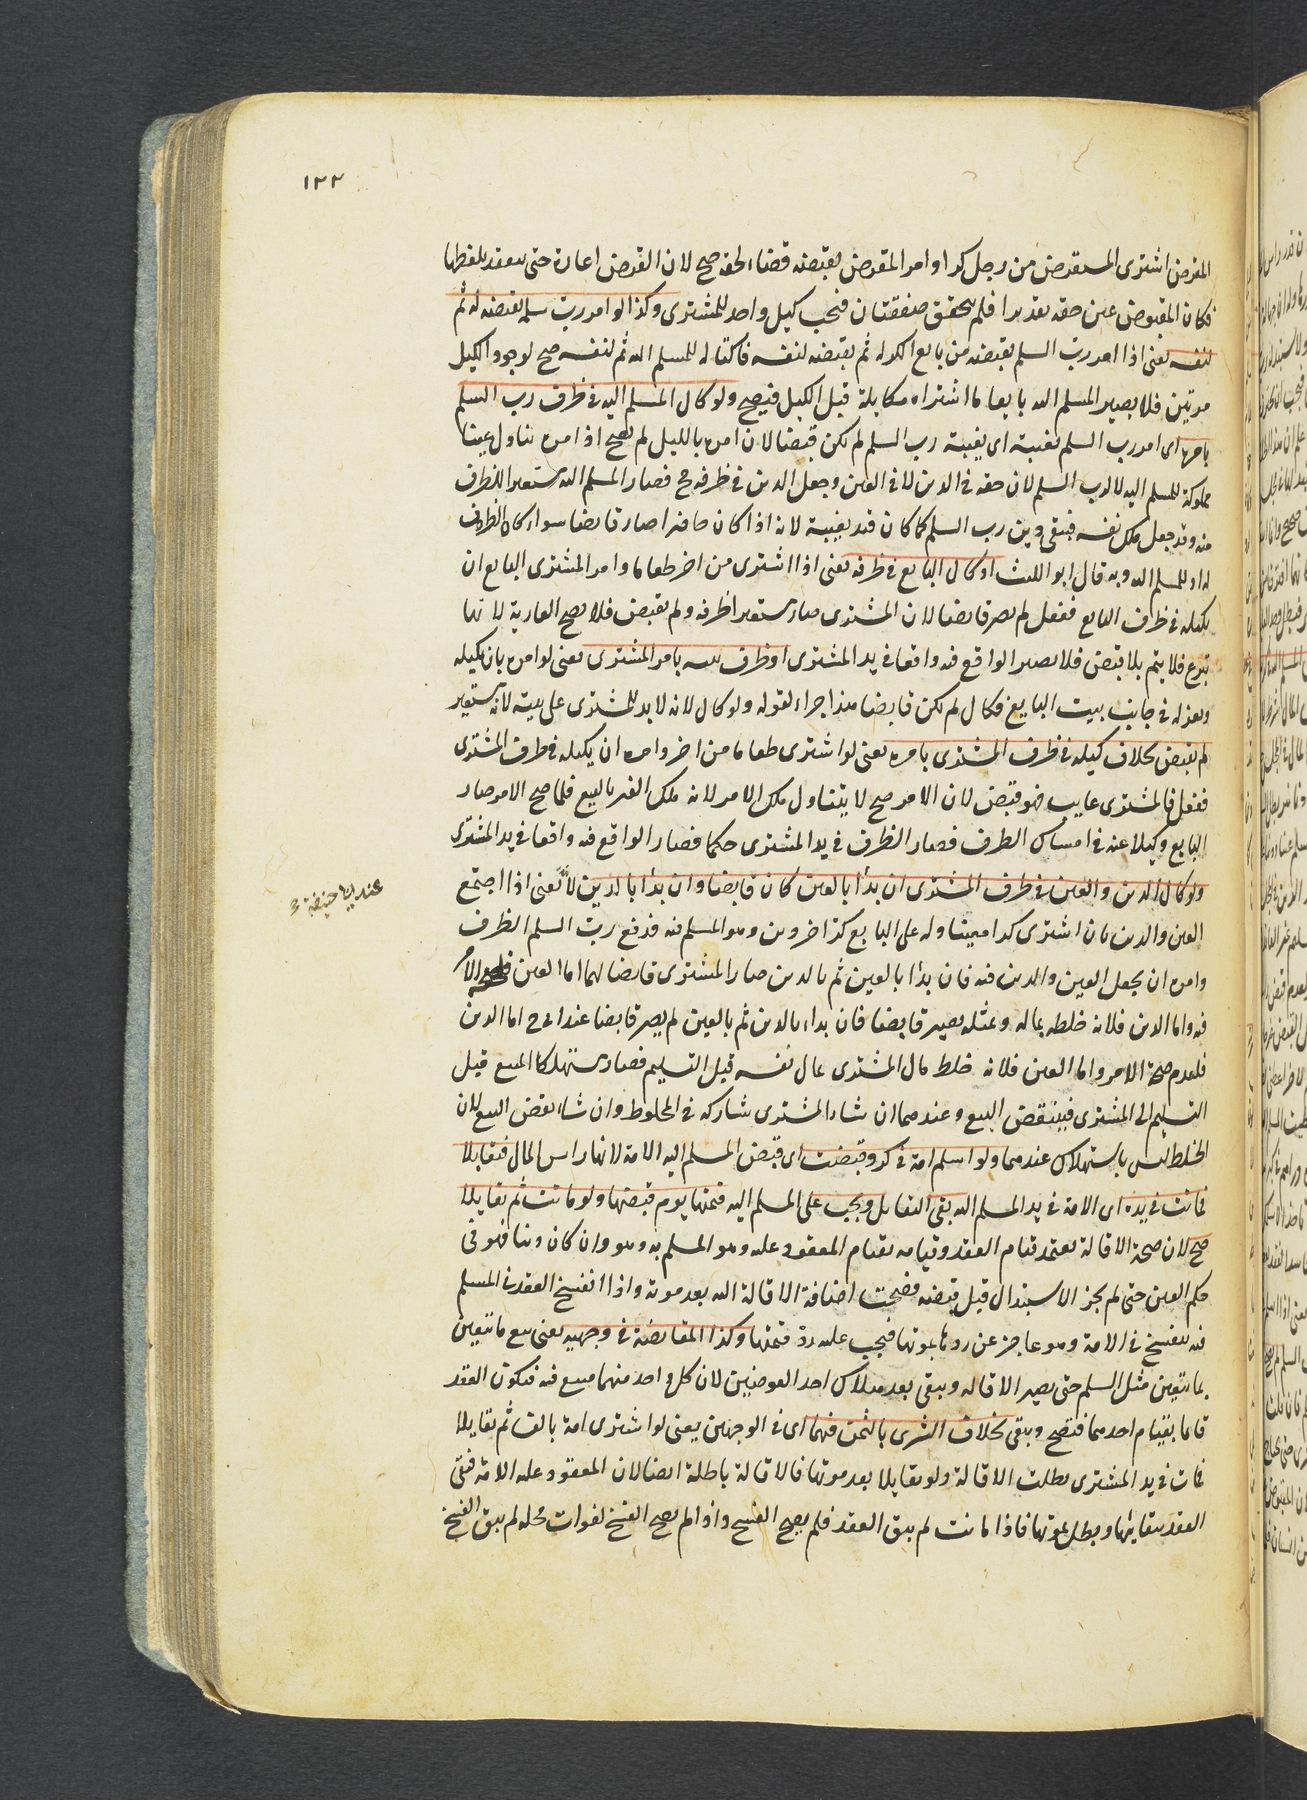 ١٢٢
المقرض اشترى المستقرض من رجل كرا وامر المقرض بقبضه قضاء لحقه صح لان القرض اعارة حتى ينعقد بلفظها
فكان المقبوض عين حقه تقديرا فلم يتحقق صفقتان فيجب كيل واحد للمشترى وكذا لو امر رب سلم بقبضه له ثم
لنفسه يعنى اذا امر رب السلم بقبضه من بايع الكر له ثم بقبضه لنفسه فاكتاله للمسلم اليه ثم لنفسه صح لوجود الكيل
مرتين فلا يصير المسلم اليه بايعا ما اشتراه مكايلة قبل الكيل فيصح ولو كال المسلم اليه فى ظرف رب السلم
بامره اى امر رب السلم بغيبة اى بغيبة رب السلم لم يكن قبضا لان امره بالكيل لم يصح اذ امره تناول عينا
مملوكة للمسلم اليه لا لرب السلم لان حقه فى الدين لا فى العين وجعل الدين فى ظرفه ح فصار المسلم اليه مستعيرا للظرف
منه وقد جعل ملك نفسه فيبقى دين رب السلم كما كان قيد بغيبة لانه اذا كان حاضرا صار قابضا سواء كان الظرف
له او للمسلم اليه وبه قال ابو الليث او كال البايع فى ظرفه يعنى اذا اشترى من اخر طعاما وامر المشترى البايع ان
يكيله فى ظرف البايع ففعل لم يصر قابضا لان المشترى صار مستعيرا ظرفه ولم يقبض فلا يصح العارية لانها
تبرع فلا يتم بلا قبض فلا يصير الواقع فيه واقعا فى يد المشترى او ظرف بيته بامر المشترى يعنى لو امره بان يكيله
ويعزله فى جانب بيت البايع فكال لم يكن قابضا هذا جزاء لقوله ولو كال لانه لا يد للمشترى على بيته لانه مستعير
لم يقبض بخلاف كيله فى ظرف المشترى بامره يعنى لو اشترى طعاما من اخر وامره ان يكيله فى ظرف المشترى
ففعل والمشترى غايب فهو قبض لان الامر صح لا يتناول ملك الامر لانه ملك الغير بالبيع فلما صح الامر صار
البايع وكيلا عنه فى امساك الظرف فصار الظرف فى يد المشترى حكما فصار الواقع فيه واقعا فى يد المشترى
ولو كال الدين والعين فى ظرف المشترى ان بدأ بالعين كان قابضا وان بدأ بالدين لا يعنى اذا اجتمع
عند ابى حنيفة
العين والدين بان اشترى كرا معينا وله على البايع كر اخر دين وهو المسلم فيه فدفع رب السلم الظرف
وامره ان يجعل العين والدين فيه فان بدأ بالعين ثم بالدين صار المشترى قابضا لهما اما العين فلصحة الامر
فيه واما الدين فلانه خلطه بماله وبمثله يصير قابضا فان بداء بالدين ثم بالعين لم يصر قابضا عند ابى ح اما الدين
فلعدم صحة الامر واما العين فلانه خلط مال المشترى بمال نفسه قبل التسليم فصار مستهلكا المبيع قبل
التسليم الى المشترى فينتقض البيع وعندهما ان شاء المشترى شاركه فى المخلوط وان شاء نقض البيع لان
الخلط ليس باستهلاك عندهما ولو اسلم امة فى كر وقبضت اى قبض المسلم اليه الامة لانها راس المال فتقايلا
فماتت فى يده اى الامة فى يد المسلم اليه بقى التقايل ويجب على المسلم اليه قيمتها يوم قبضها ولو ماتت ثم تقايلا
صح لان صحة الاقالة يعتمد قيام العقد وقيامه بقيام المعقود عليه وهو المسلم به وهو وان كان دينا فهو فى
حكم العين حتى لم يجز الاستبدال قبل قبضه فصحت اضافة الاقالة اليه بعد موته واذا انفسخ العقد فى المسلم
فيه ينفسخ فى الامة وهو عاجز عن ردها بموتها فيجب عليه رد قيمتها وكذا المقايضة فى وجهيه يعنى بيع ما يتعين
بما يتعين مثل السلم حتى يصير الاقاله ويبقى بعد هلاك احد العوضين لان كل واحد منهما مبيع فيه فيكون العقد
قايما بقيام احدهما فتصح ويبقى بخلاف الشرى بالثمن فيهما اى فى الوجهين يعنى لو اشترى امة بالف ثم تقايلا
فماتت فى يد المشترى بطلت الاقالة ولو تقايلا بعد موتها فالاقالة باطلة ايضا لان المعقود عليه الامة فيبقى
العقد ببقائها ويبطل بموتها فاذا ماتت لم يبق العقد فلم يصح الفسخ واذا لم يصح الفسخ لفوات محله لم يبق الفسخ